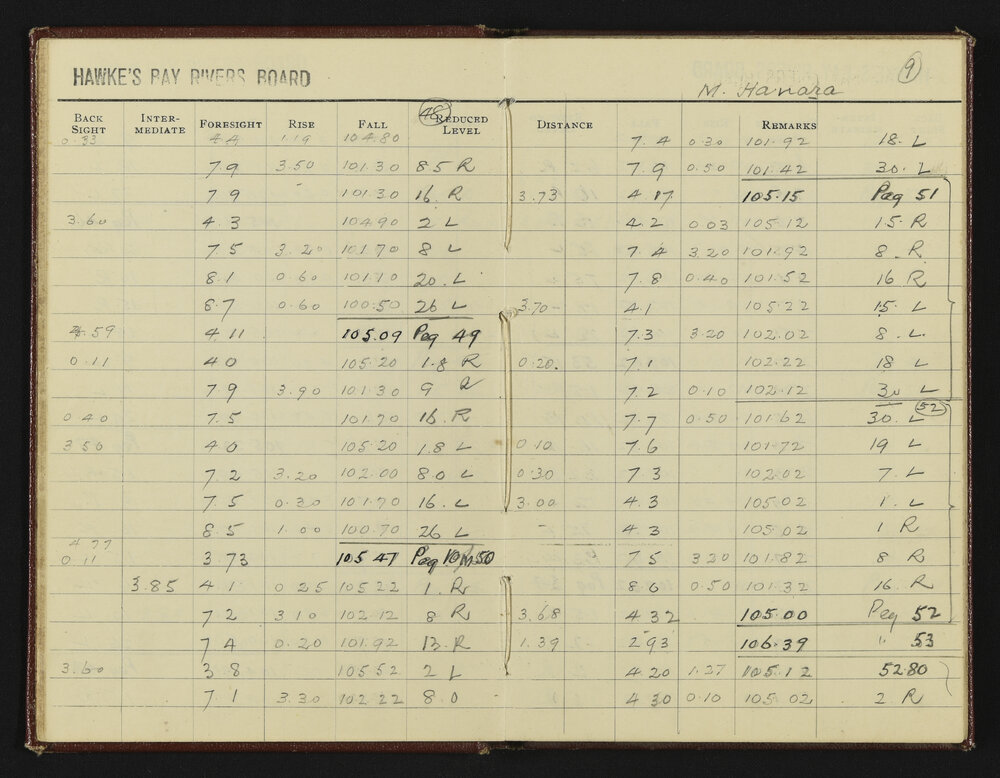 HAWKE'S BAY RIVERS BOARD
9
M. Hanara
BACK SIGHT INTER-MEDIATE FORESIGHT RISE FALL 48 REDUCED LEVEL DISTANCE REMARKS
0.33 4.4 1.19 104.80
7.9 3.50 101.30 85 R
7 9 101.30 16. R
3.60 4.3 104.90 2 L
7 5 3.20 101.70 8 L
8.1 0.60 101.10 20. L
8.7 0.60 100.50 26 L
4.59 4.11 105.09 Peg 49
0.11 4 0 105.20 1.8 R
7 9 3.90 101.30 9 R
0.40 7.5 101.70 16. R
3.50 4 0 105.20 1.8 L
7.2 3.20 102.00 8.0 L
7.5 0.30 101.70 16. L
8.5 1.00 100.70 26 L
4.77
0.11 3.73 105.47 Peg 50
3.85 4 1 0.25 105.22 1. R
7 2 3.10 102.12 8 R
7 4 0.20 101.92 13. R
3.60 3.8 105.52 2 L
7. 1 3.30 102.22 8.0
7. 4 0.30 101.92 18. L
7. 9 0.50 101.42 30. L
3.73 4.17 105.15 Peg 51
4.2 0.03 105.12 1.5. R
7. 4 3.20 101.92 8. R
7. 8 0.40 101.52 16 R
3.70 4.1 105.22 1.5. L
7.3 3.20 102.02 8. L.
0.20. 7.1 102.22 18 L
7.2 0.10 102.12 30 L
52
7.7 0.50 101.62 30. L
0.10 7.6 101.72 19 L
0.30 7.3 102.02 7. L
3.00 4.3 105.02 1. L
4 3 105.02 1 R
7 5 3.20 101.82 8 R
8 0 0.50 101.32 16. R
3.68 4 32 105.00 Peg 52
1.39 2.93 106.39 " 53
4 20 1.27 105.12 52.80
4 30 0.10 105.02 2. R